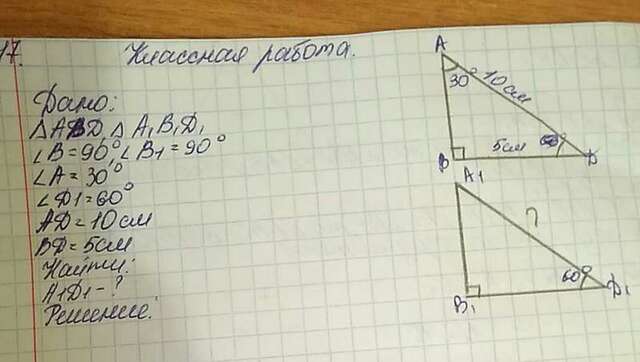 17.
Классная работа.
Дано:
△ABD, △A₁B₁D₁
∠B=90°, ∠B₁=90°
∠A=30°
∠D1=60°
AD=10см
BD=5см
Найти:
A₁D₁-?
Решение:
A
30°
10см
5см
B
D
A₁
?
60°
B₁
D₁